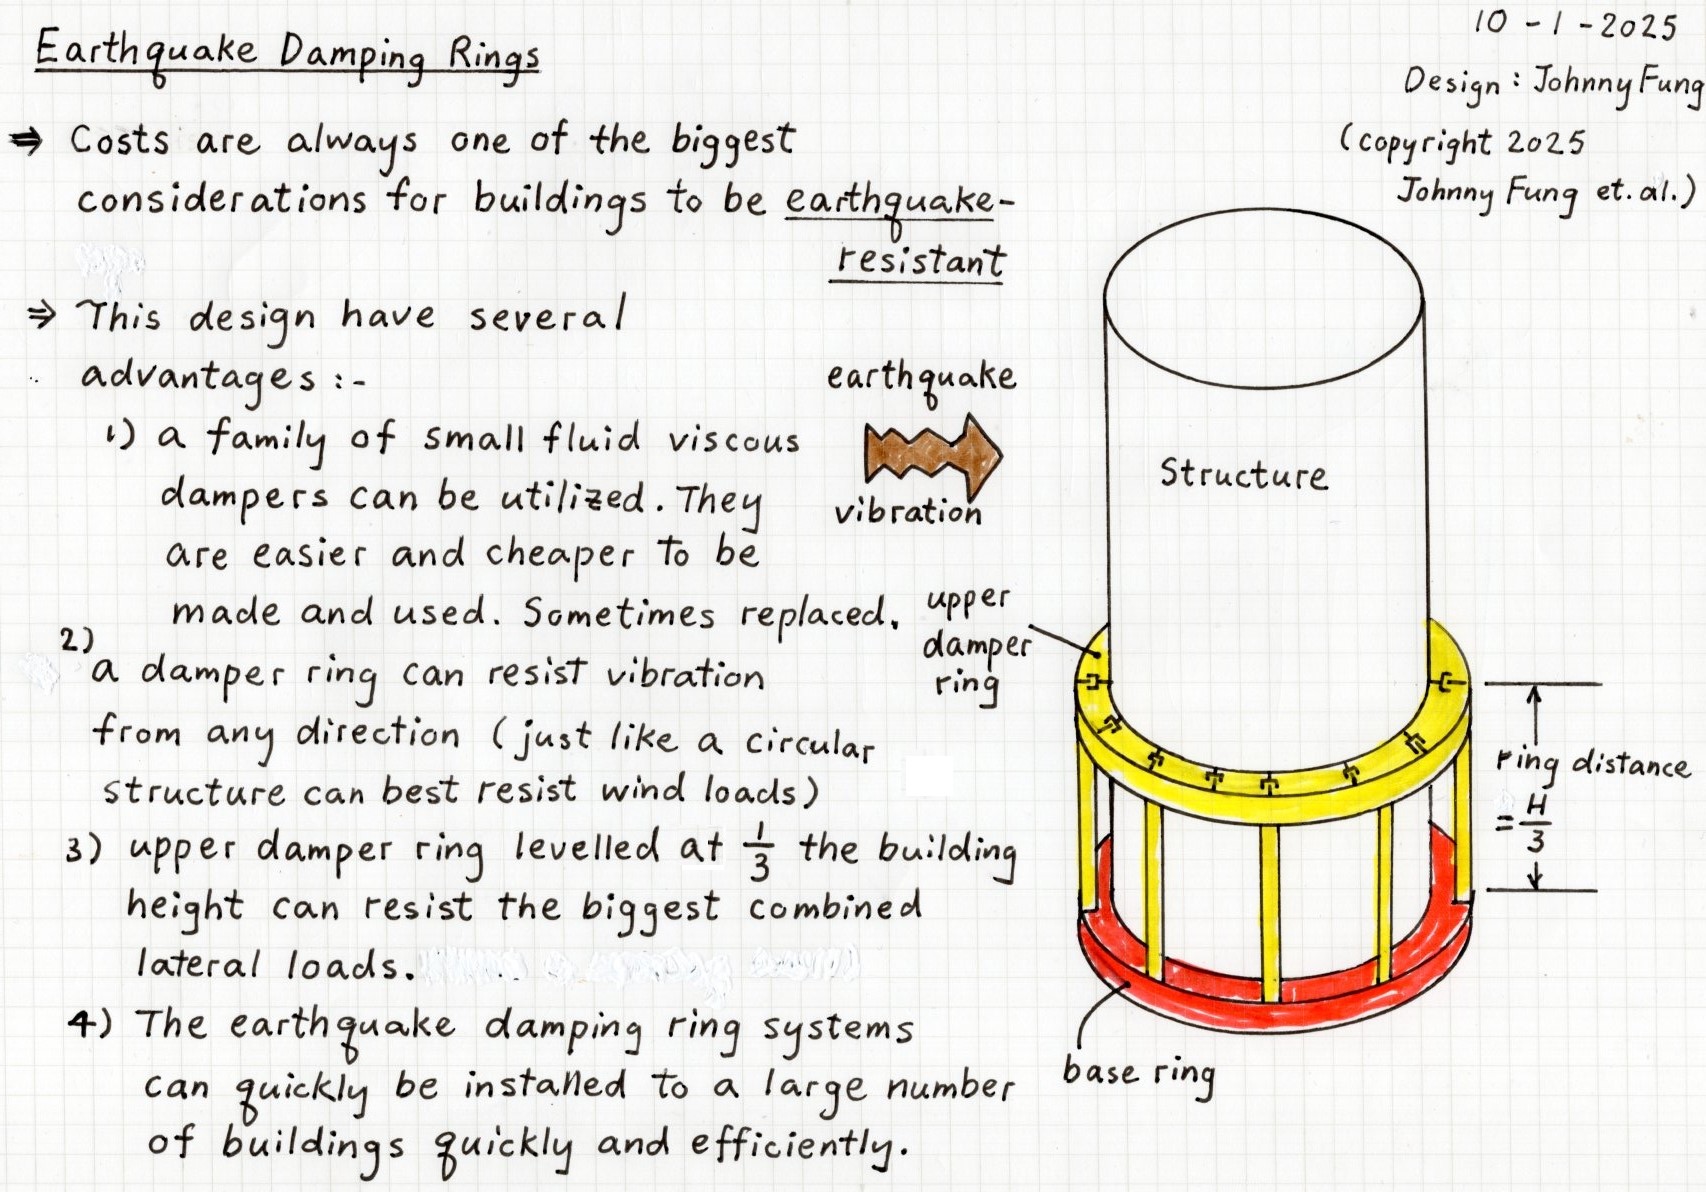 Earthquake Damping Rings
10 - 1 - 2025
Design : Johnny Fung
(copyright 2025
Johnny Fung et. al.)
⇒ Costs are always one of the biggest
considerations for buildings to be earthquake-
resistant
⇒ This design have several
advantages :-
1) a family of small fluid viscous
dampers can be utilized. They
are easier and cheaper to be
made and used. Sometimes replaced.
2) a damper ring can resist vibration
from any direction (just like a circular
structure can best resist wind loads)
3) upper damper ring levelled at 1/3 the building
height can resist the biggest combined
lateral loads.
4) The earthquake damping ring systems
can quickly be installed to a large number
of buildings quickly and efficiently.
earthquake
vibration
Structure
upper
damper
ring
ring distance
= H/3
base ring